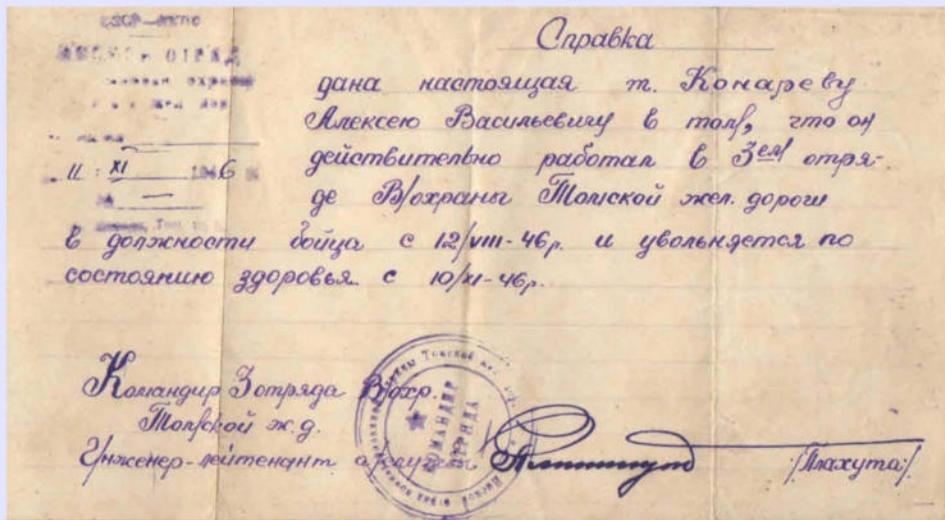 СССР-НКПС
ОТРЯД
11 : XI 1946
Справка
дана настоящая т. Конареву
Алексею Васильевичу в том, что он
действительно работал в 3ем отря-
де В/охраны Томской жел. дороги
в должности бойца с 12/VIII-46г. и увольняется по
состоянию здоровья с 10/XI-46г.
Командир 3 отряда В/охр.
Томской ж.д.
Инженер-лейтенант
КОМАНДИР
ОТРЯДА
Томской
/Плахута/